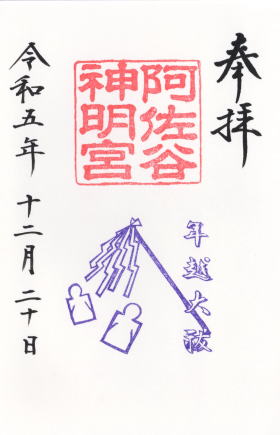 奉拝
阿佐谷
神明宮
年越大祓
令和五年 十二月 二十日